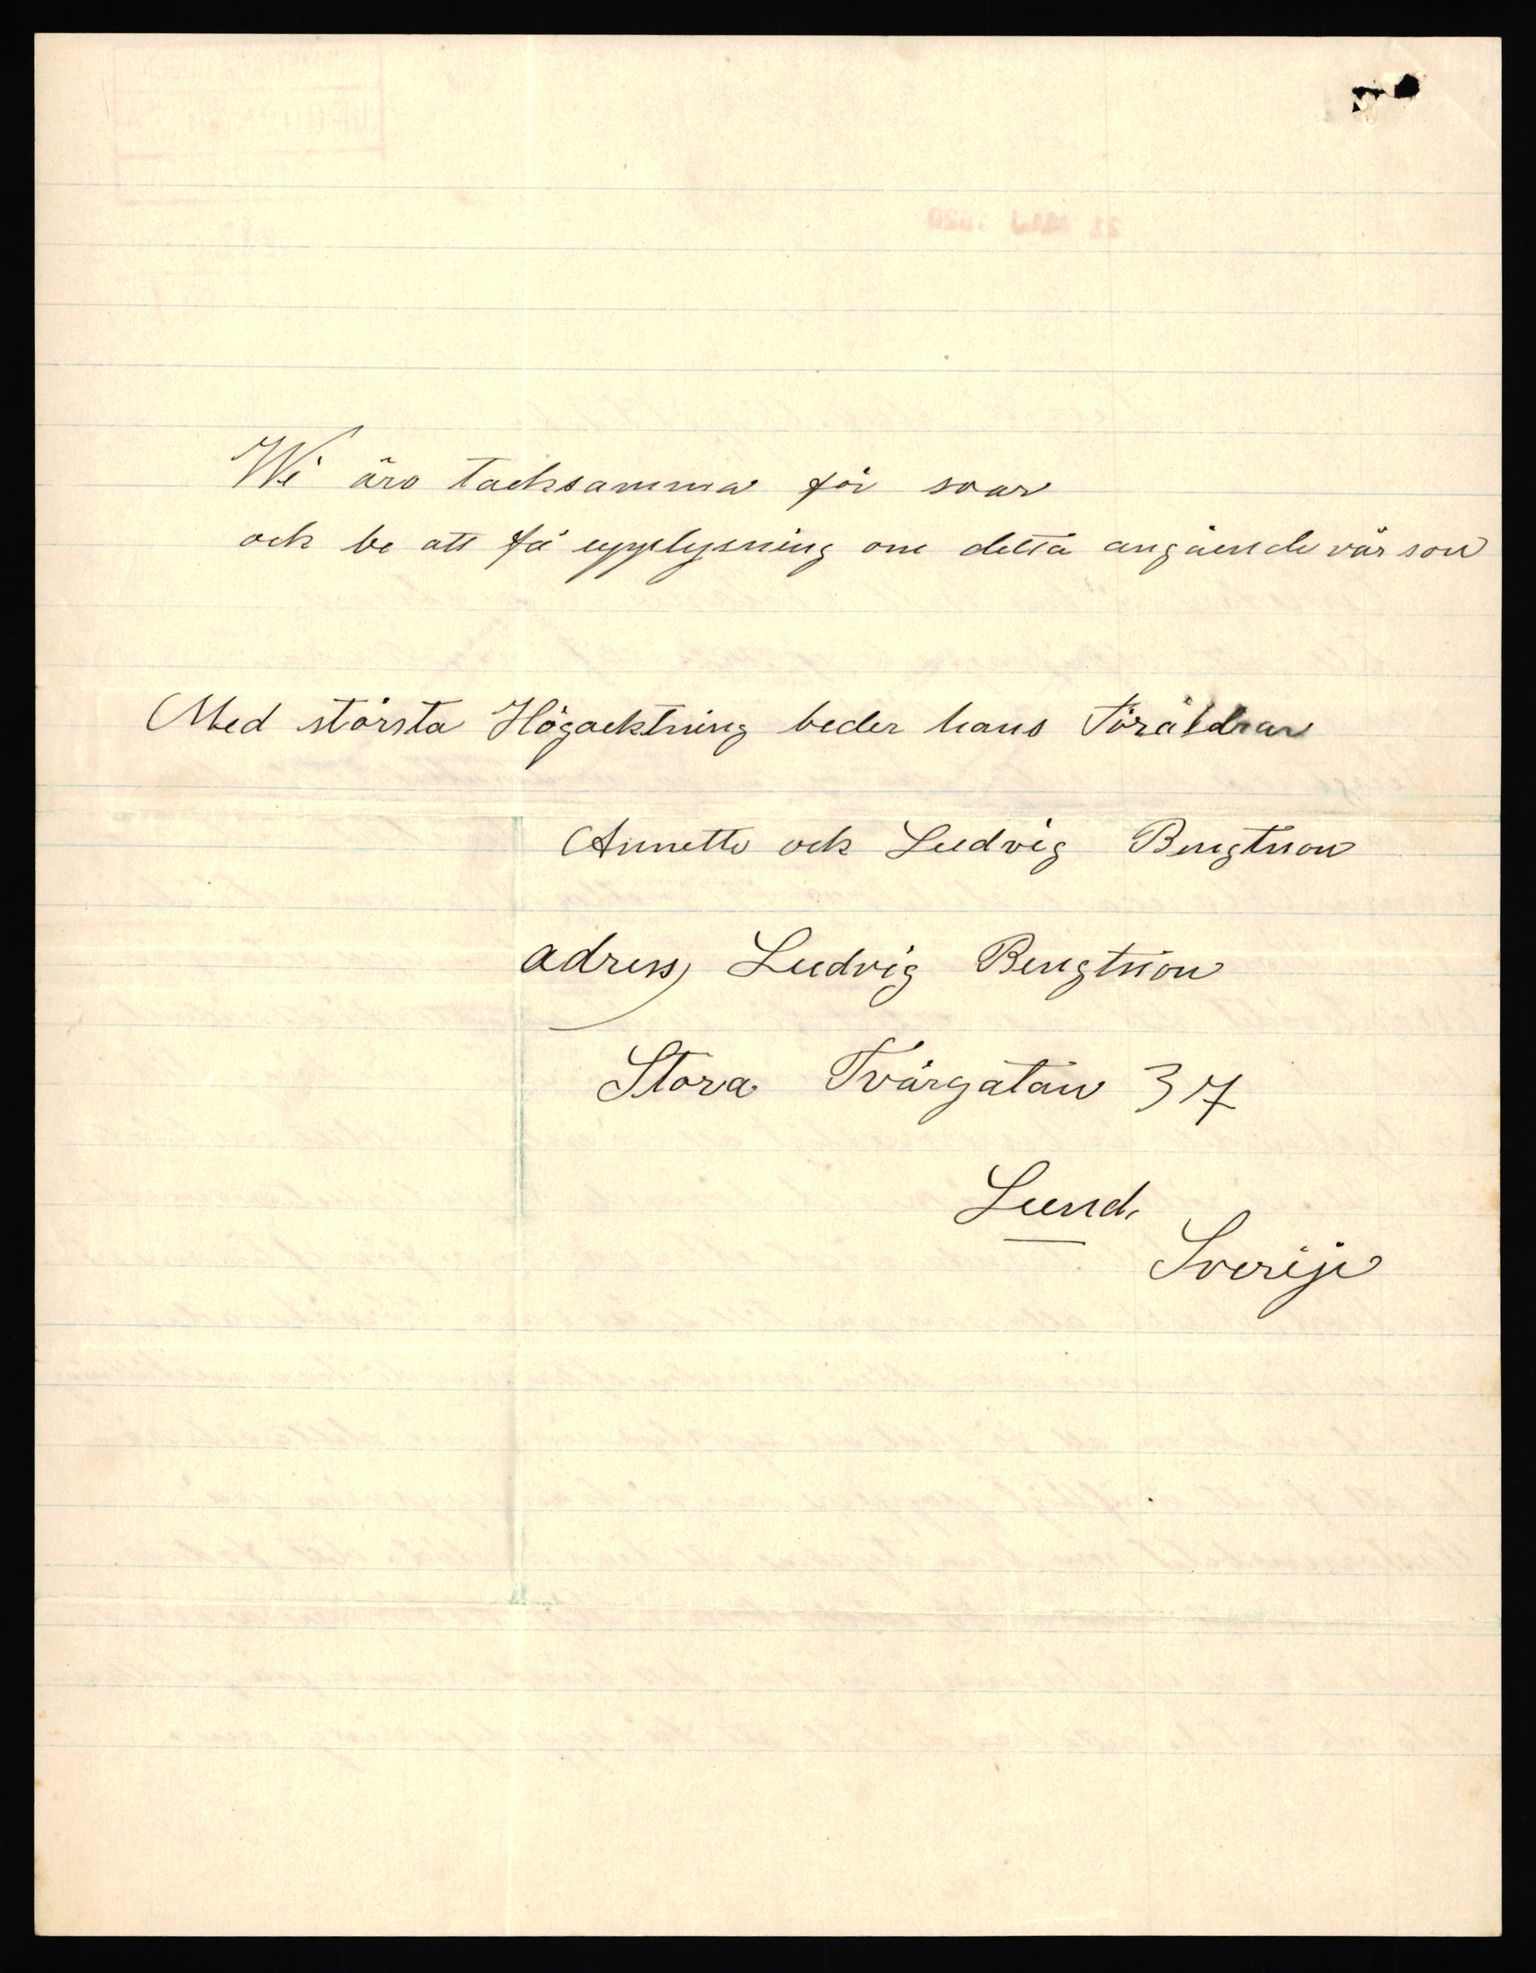 Wi äro tacksamma för svar
ock be att få upplysning om detta angående vår son
Med största Högacktning beder hans Föräldrar
Annette ock Ludvig Bengtsson
adress, Ludvig Bengtsson
Stora Tvärgatan 37
Lund.
Sverije